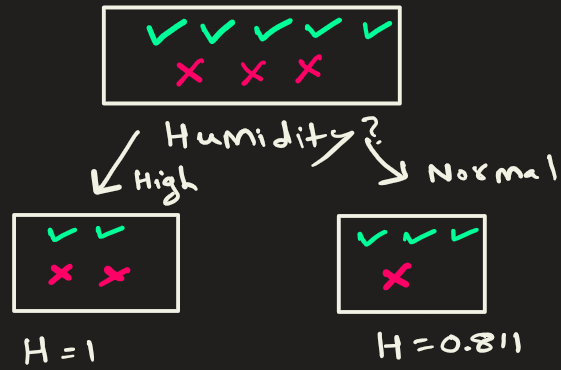 Humidity?
High
Normal
H = 1
H = 0.811